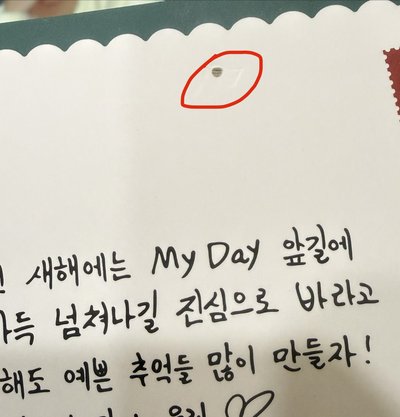 새해에는 My Day 앞길에
가득 넘쳐나길 진심으로 바라고
해도 예쁜 추억들 많이 만들자!